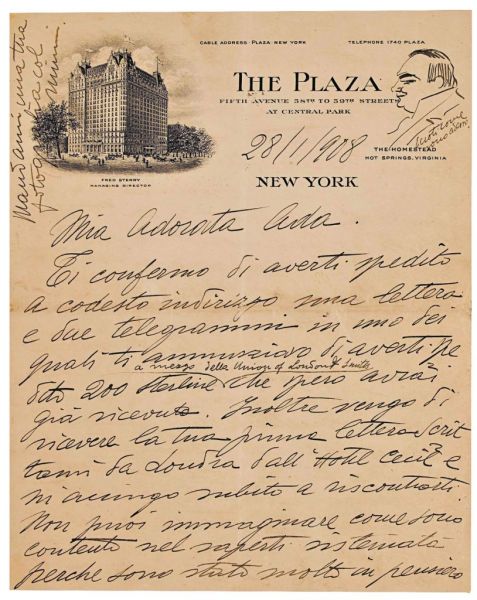 Mandami una tua
fotografia col
Mimmi
CABLE ADDRESS - PLAZA - NEW YORK
TELEPHONE 1740 PLAZA
THE PLAZA
FIFTH AVENUE 58TH TO 59TH STREETS
AT CENTRAL PARK
28/1/908
THE HOMESTEAD
HOT SPRINGS, VIRGINIA
FRED STERRY
MANAGING DIRECTOR
NEW YORK
Mia Adorata Ada.
Ti confermo di averti spedito
a codesto indirizzo una lettera
e due telegrammi in uno dei
quali ti annunziavo di averti spe
a mezzo della Union of London & Smith
dito 200 sterline che spero avrai
già ricevute. Inoltre vengo di
ricevere la tua prima lettera scrit
tami da Londra dall'Hôtel Cecil e
mi accingo subito a riscontrarti.
Non puoi immaginare come sono
contento nel saperti sistemata
perchè sono stato molto in pensiero